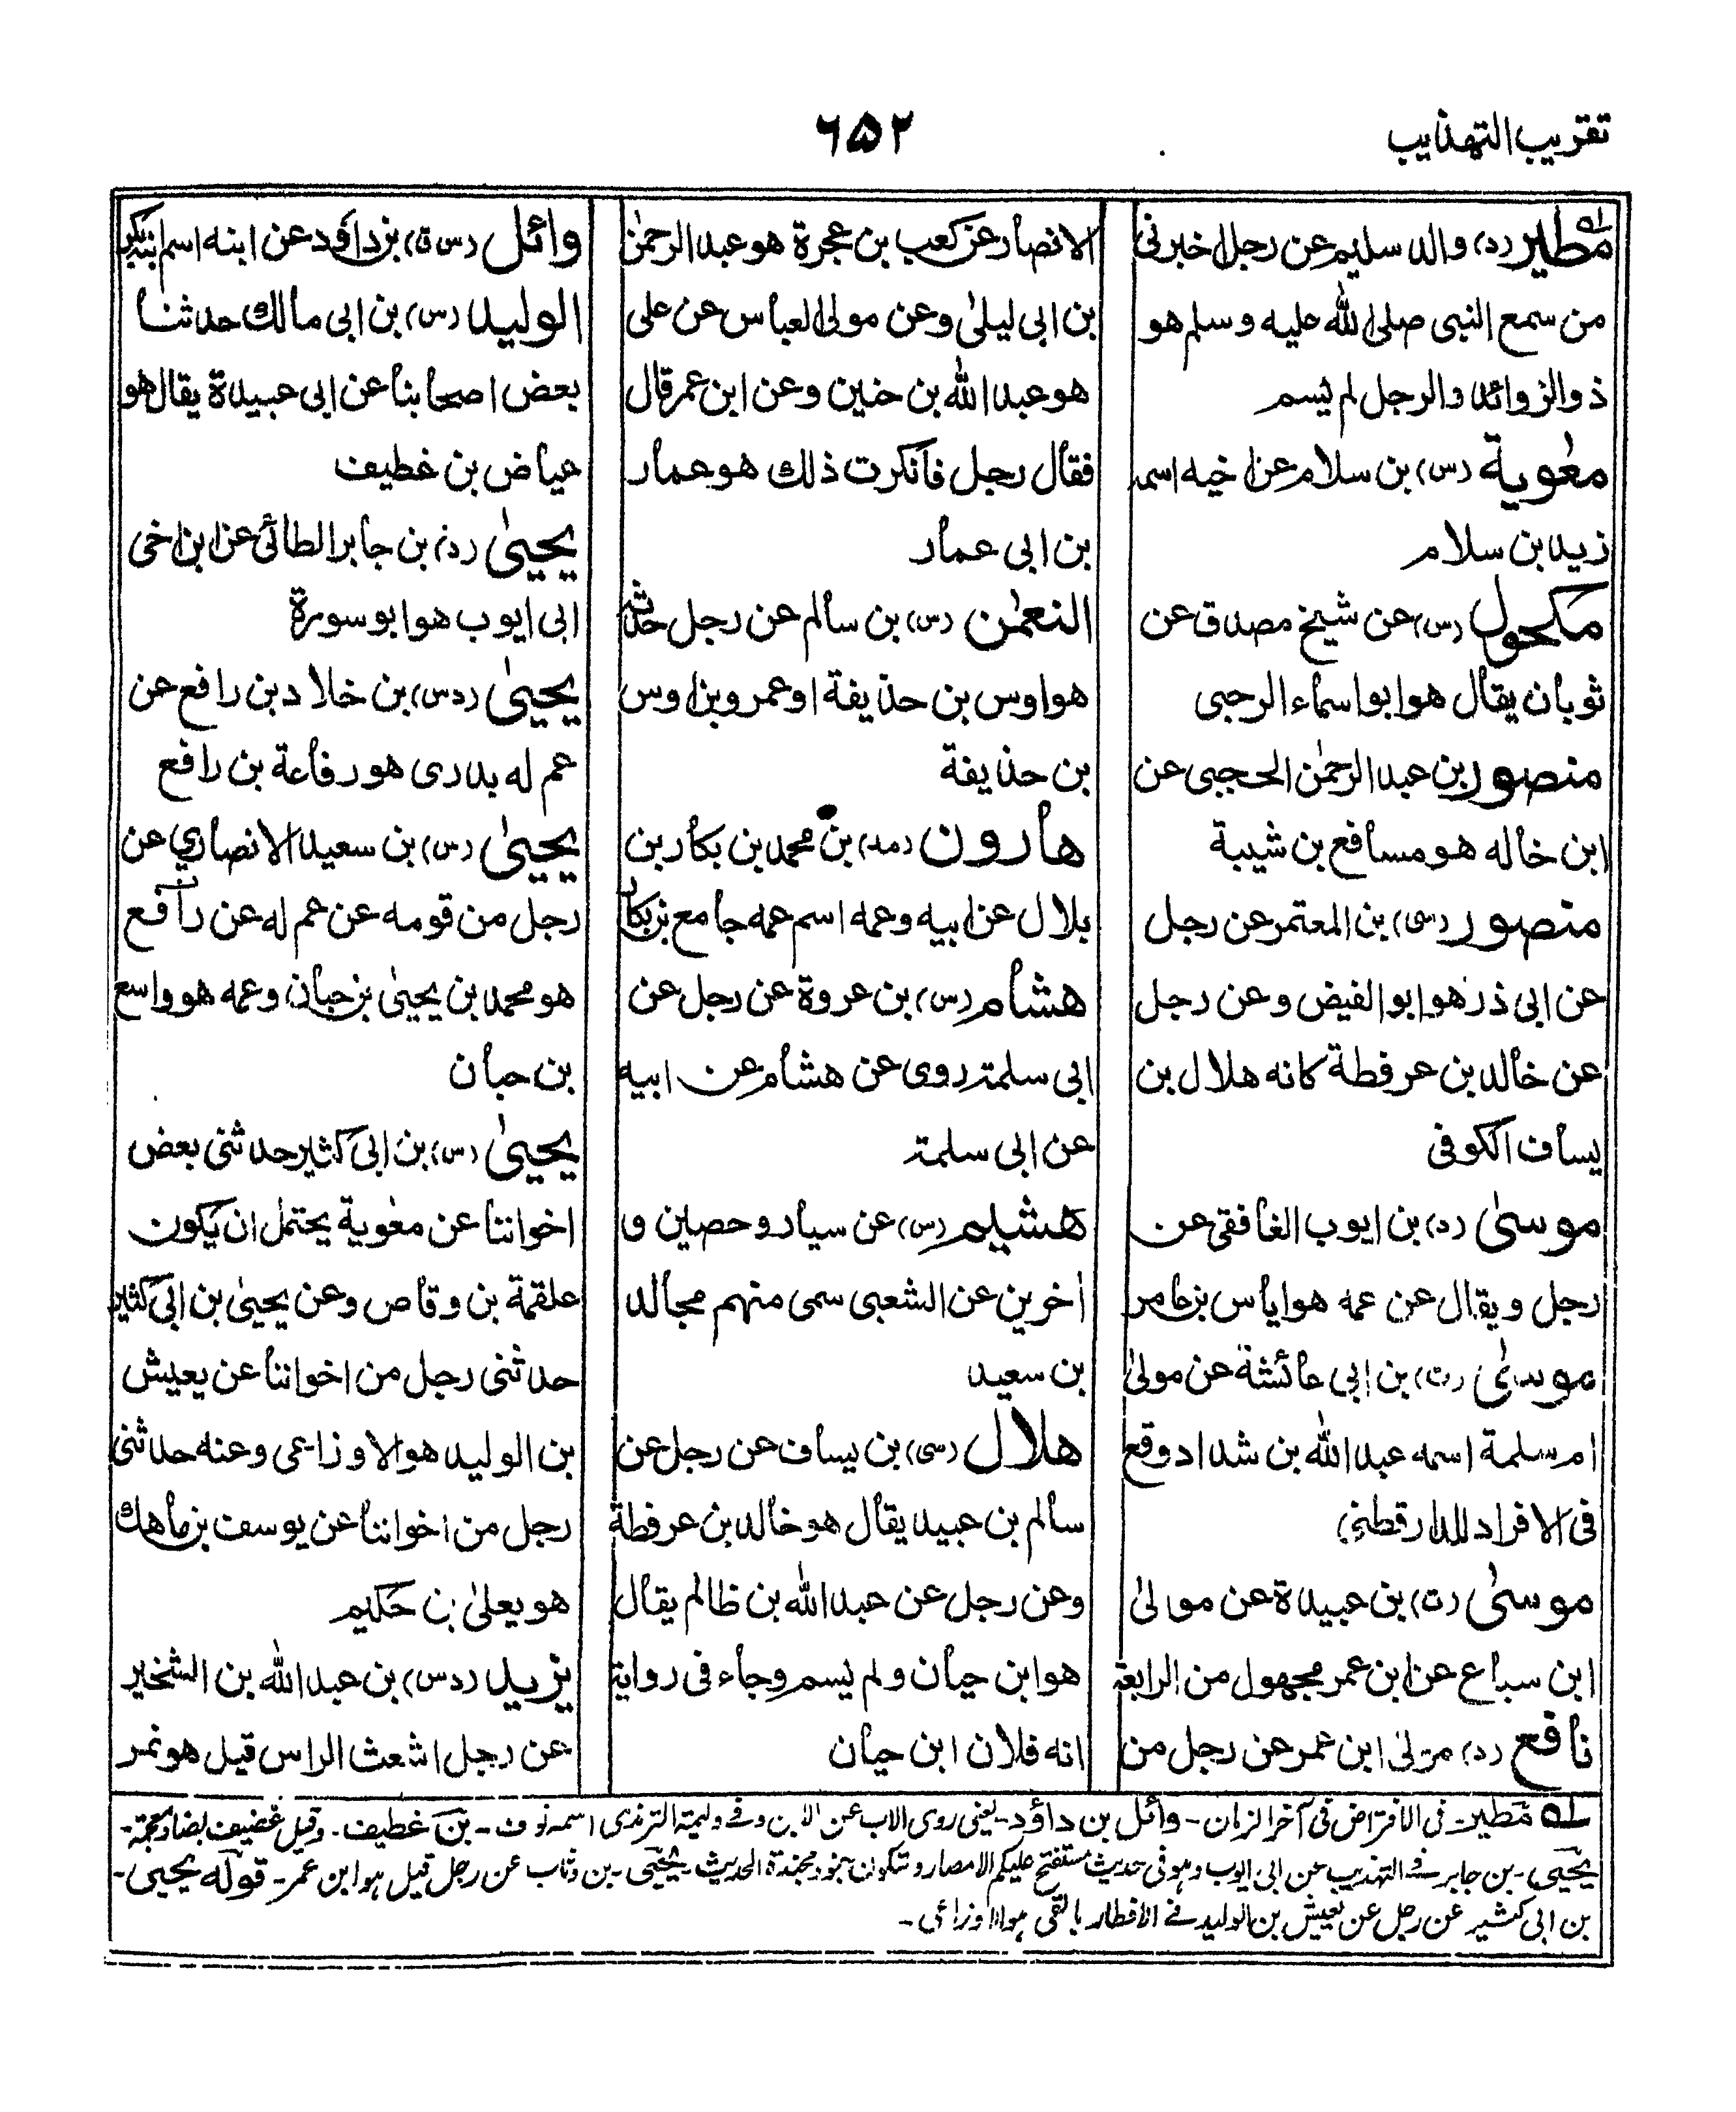 تقريب التهذيب
٦٥٢
مطير (د) والد سليم عن رجل اخبرنى
من سمع النبى صلى الله عليه وسلم هو
ذوالزوائد والرجل لم يسم
معٰوية (س) بن سلام عن اخيه اسمه
زيد بن سلام
مكحول (س) عن شيخ مصدق عن
ثوبان يقال هو ابو اسماء الرحبى
منصور بن عبد الرحمٰن الحجبى عن
ابن خاله هو مسافع بن شيبة
منصور (سى) بن المعتمر عن رجل
عن ابى ذر هو ابو الفيض وعن رجل
عن خالد بن عرفطة كانه هلال بن
يساف الكوفى
موسىٰ (د) بن ايوب الغافقى عن
رجل ويقال عن عمه هو اياس بن عامر
موسىٰ (ت) بن ابي عائشة عن مولىٰ
ام سلمة اسمه عبد الله بن شداد وقع
فى الافراد للدارقطنى
موسىٰ (ت) بن عبيدة عن مولىٰ
ابن سباع عن ابن عمر مجهول من الرابعة
نافع (د) مولى ابن عمر عن رجل من
الانصار عن كعب بن عجرة هو عبد الرحمٰن
بن ابى ليلىٰ وعن مولى العباس عن على
هو عبد الله بن حنين وعن ابن عمر قال
فقال رجل فانكرت ذلك هو عمار
بن ابى عمار
النعمٰن (س) بن سالم عن رجل حدثه
هو اوس بن حذيفة او عمرو بن اوس
بن حذيفة
هارون (مد) بن محمد بن بكار بن
بلال عن ابيه وعمه اسم عمه جامع بن بكار
هشام (س) بن عروة عن رجل عن
ابى سلمة روى عن هشام عن ابيه
عن ابى سلمة
هشيم (س) عن سيار وحصين و
اٰخرين عن الشعبى سمى منهم مجالد
بن سعيد
هلال (سى) بن يساف عن رجل عن
سالم بن عبيد يقال هو خالد بن عرفطة
وعن رجل عن عبد الله بن ظالم يقال
هو ابن حيان ولم يسم وجاء فى رواية
انه فلان ابن حيان
وائل (س ق) بن داؤد عن ابنه اسم ابنه بكر
الوليد (س) بن ابى مالك حدثنا
بعض اصحابنا عن ابى عبيدة يقال هو
عياض بن غطيف
يحيىٰ (د) بن جابر الطائى عن ابن اخى
ابى ايوب هو ابو سورة
يحيىٰ (دس) بن خلاد بن رافع عن
عم له بدرى هو رفاعة بن رافع
يحيىٰ (س) بن سعيد الانصاري عن
رجل من قومه عن عم له عن رافع
هو محمد بن يحيىٰ بن حبان وعمه هو واسع
بن حبان
يحيىٰ (س) بن ابى كثير حدثنى بعض
اخواننا عن معٰوية يحتمل ان يكون
علقمة بن وقاص وعن يحيىٰ بن ابى كثير
حدثنى رجل من اخواننا عن يعيش
بن الوليد هو الاوزاعى وعنه حدثنى
رجل من اخواننا عن يوسف بن ماهك
هو يعلىٰ بن حكيم
يزيد (دس) بن عبد الله بن الشخير
عن رجل اشعث الراس قيل هو نمر
١ه مطير فى الافتراض فى آخر الزمان - وائل بن داؤد - يعنى روى الاب عن الابن و فى وليمة الترمذى اسمه نوف - بن غطيف - وقيل غضيف بضاد معجمة -
يحيى - بن جابر فى التهذيب عن ابى ايوب وهو فى حديث ستفتح عليكم الامصار وستكون جنود مجندة الحديث - يحيى - بن وثاب عن رجل قيل هو ابن عمر - قوله يحيى -
بن ابى كثير عن رجل عن يعيش بن الوليد فى الافطار بالقى هو الاوزاعى -